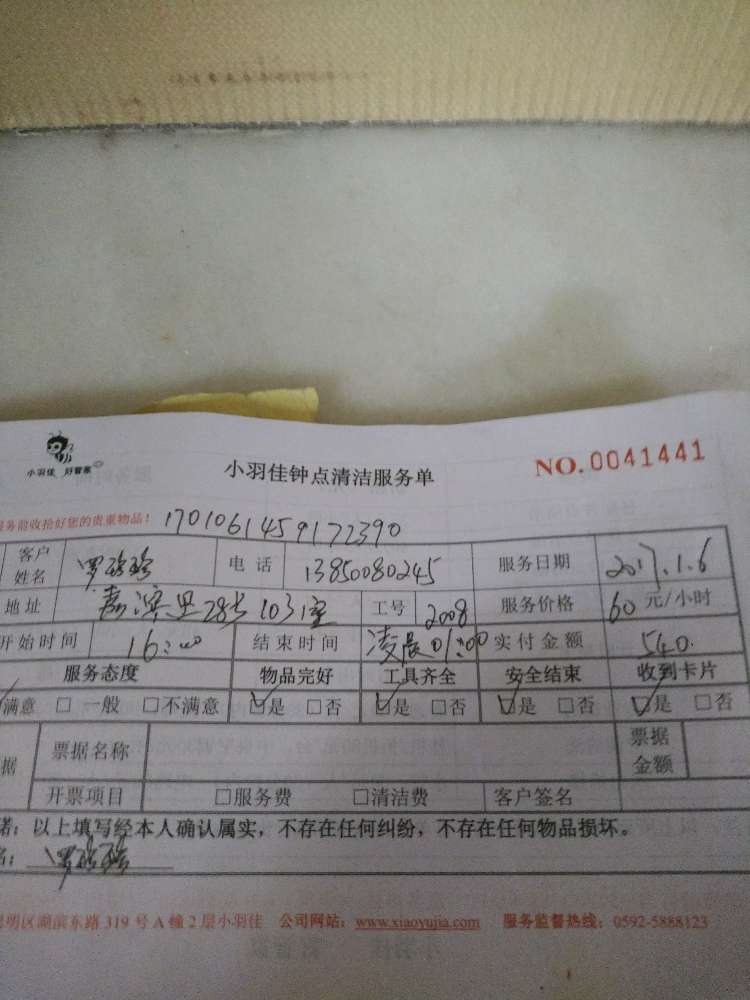 小羽佳 好管家
小羽佳钟点清洁服务单
NO.0041441
务前收拾好您的贵重物品! 1701061459172390
客户姓名 电话 13850080245 服务日期 2017.1.6
地址 嘉滨里28号103室 工号 2008 服务价格 60元/小时
开始时间 16:00 结束时间 凌晨01:00 实付金额 540.
服务态度 物品完好 工具齐全 安全结束 收到卡片
满意 □一般 □不满意 ☑是 □否 ☑是 □否 ☑是 □否 ☑是 □否
据 票据名称 票据金额
开票项目 □服务费 □清洁费 客户签名
诺:以上填写经本人确认属实,不存在任何纠纷,不存在任何物品损坏。
明区湖滨东路319号A幢2层小羽佳 公司网站:www.xiaoyujia.com 服务监督热线:0592-5888123